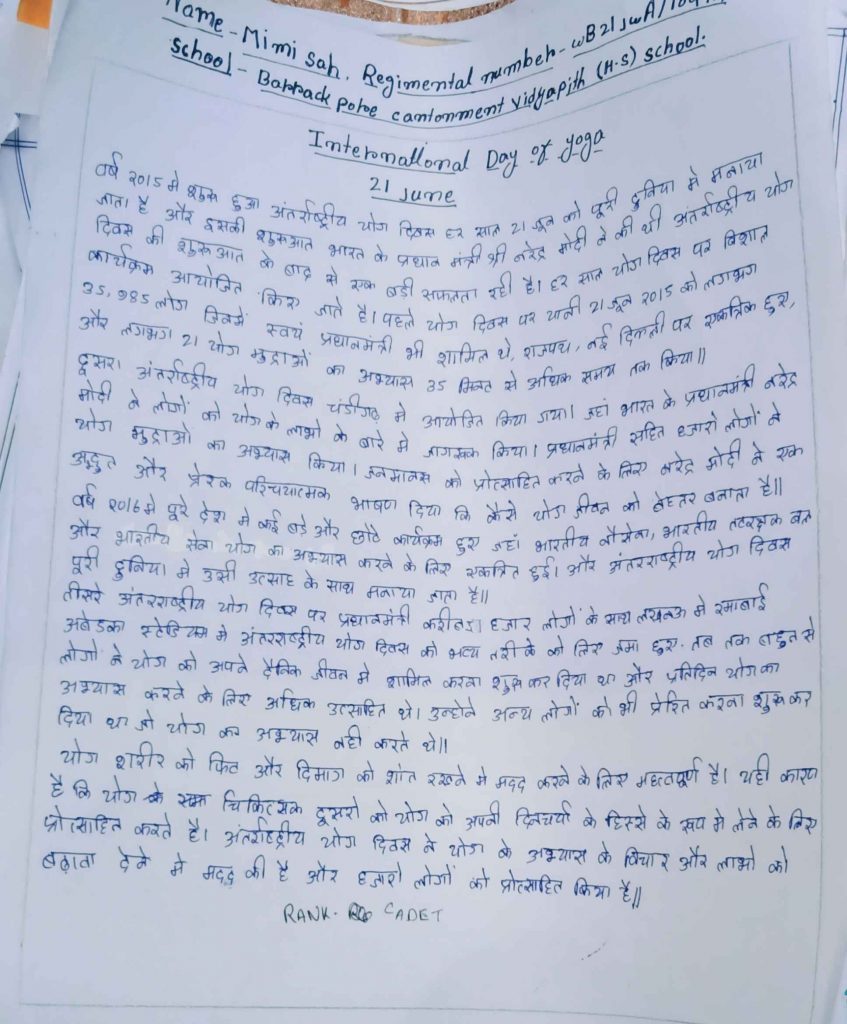 Name - Mimi Sah. Regimental number - WB21JWA/
School - Barrackpore cantonment Vidyapith (H.S) School.
International Day of Yoga
21 June
वर्ष 2015 मे शुरू हुआ अंतर्राष्ट्रीय योग दिवस हर साल 21 जून को पूरी दुनिया मे मनाया
जाता है और इसकी शुरूआत भारत के प्रधान मंत्री श्री नरेंद्र मोदी ने की थी अंतर्राष्ट्रीय योग
दिवस की शुरूआत के बाद से एक बडी सफलता रही है। हर साल योग दिवस पर विशाल
कार्यक्रम आयोजित किए जाते है। पहले योग दिवस पर यानी 21 जून 2015 को लगभग
35,985 लोग जिनमें स्वयं प्रधानमंत्री भी शामिल थे, राजपथ, नई दिल्ली पर एकत्रिक हुए,
और लगभग 21 योग मुद्राओं का अभ्यास 35 मिनट से अधिक समय तक किया॥
दूसरा अंतर्राष्ट्रीय योग दिवस चंडीगढ़ मे आयोजित किया गया। जहां भारत के प्रधानमंत्री नरेंद्र
मोदी ने लोगों को योग के लाभो के बारे मे जागरूक किया। प्रधानमंत्री सहित हजारो लोगों ने
योग मुद्राओ का अभ्यास किया। जनमानस को प्रोत्साहित करने के लिए नरेंद्र मोदी ने एक
अद्भुत और प्रेरक परिचयात्मक भाषण दिया कि कैसे योग जीवन को बेहतर बनाता है॥
वर्ष 2016 मे पूरे देश मे कई बड़े और छोटे कार्यक्रम हुए जहां भारतीय नौसेना, भारतीय तटरक्षक बल
और भारतीय सेना योग का अभ्यास करने के लिए एकत्रित हुई। और अंतरराष्ट्रीय योग दिवस
पूरी दुनिया मे उसी उत्साह के साथ मनाया जाता है॥
तीसरे अंतरराष्ट्रीय योग दिवस पर प्रधानमंत्री करीब हजार लोगों के साथ लखनऊ मे रमाबाई
अंबेडका स्टेडियम मे अंतरराष्ट्रीय योग दिवस को भव्य तरीके को लिए जमा हुए. तब तक बहुत से
लोगों ने योग को अपने दैनिक जीवन मे शामिल करना शुरू कर दिया था और प्रतिदिन योग का
अभ्यास करने के लिए अधिक उत्साहित थे। उन्होने अन्य लोगों को भी प्रेरित करना शुरू कर
दिया था जो योग का अभ्यास नही करते थे॥
योग शरीर को फिट और दिमाग को शांत रखने मे मदद करने के लिए महत्वपूर्ण है। यही कारण
है कि योग चिकित्सक दूसरो को योग को अपनी दिनचर्या के हिस्से के रूप मे लेने के लिए
प्रोत्साहित करते है। अंतर्राष्ट्रीय योग दिवस ने योग के अभ्यास के विचार और लाभो को
बढ़ावा देने मे मदद की है और हजारो लोगों को प्रोत्साहित किया है॥
RANK- CADET